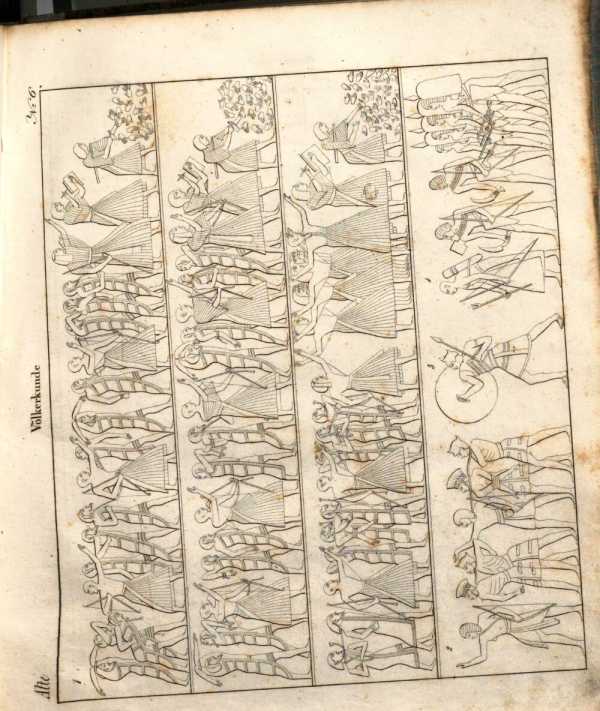 Alte Völkerkunde No 6.
1
2
3